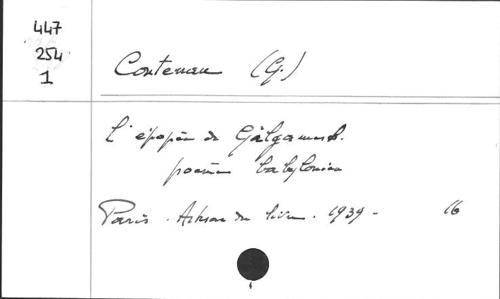 447
254
1
Contenau (G.)
L'épopée de Gilgamesh.
poème babylonien
Paris. Artisan du livre. 1939- 16